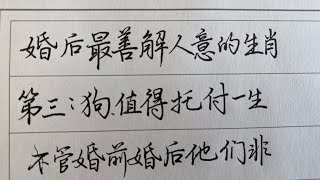 婚后最善解人意的生肖
第三:狗,值得托付一生
不管婚前婚后他们非